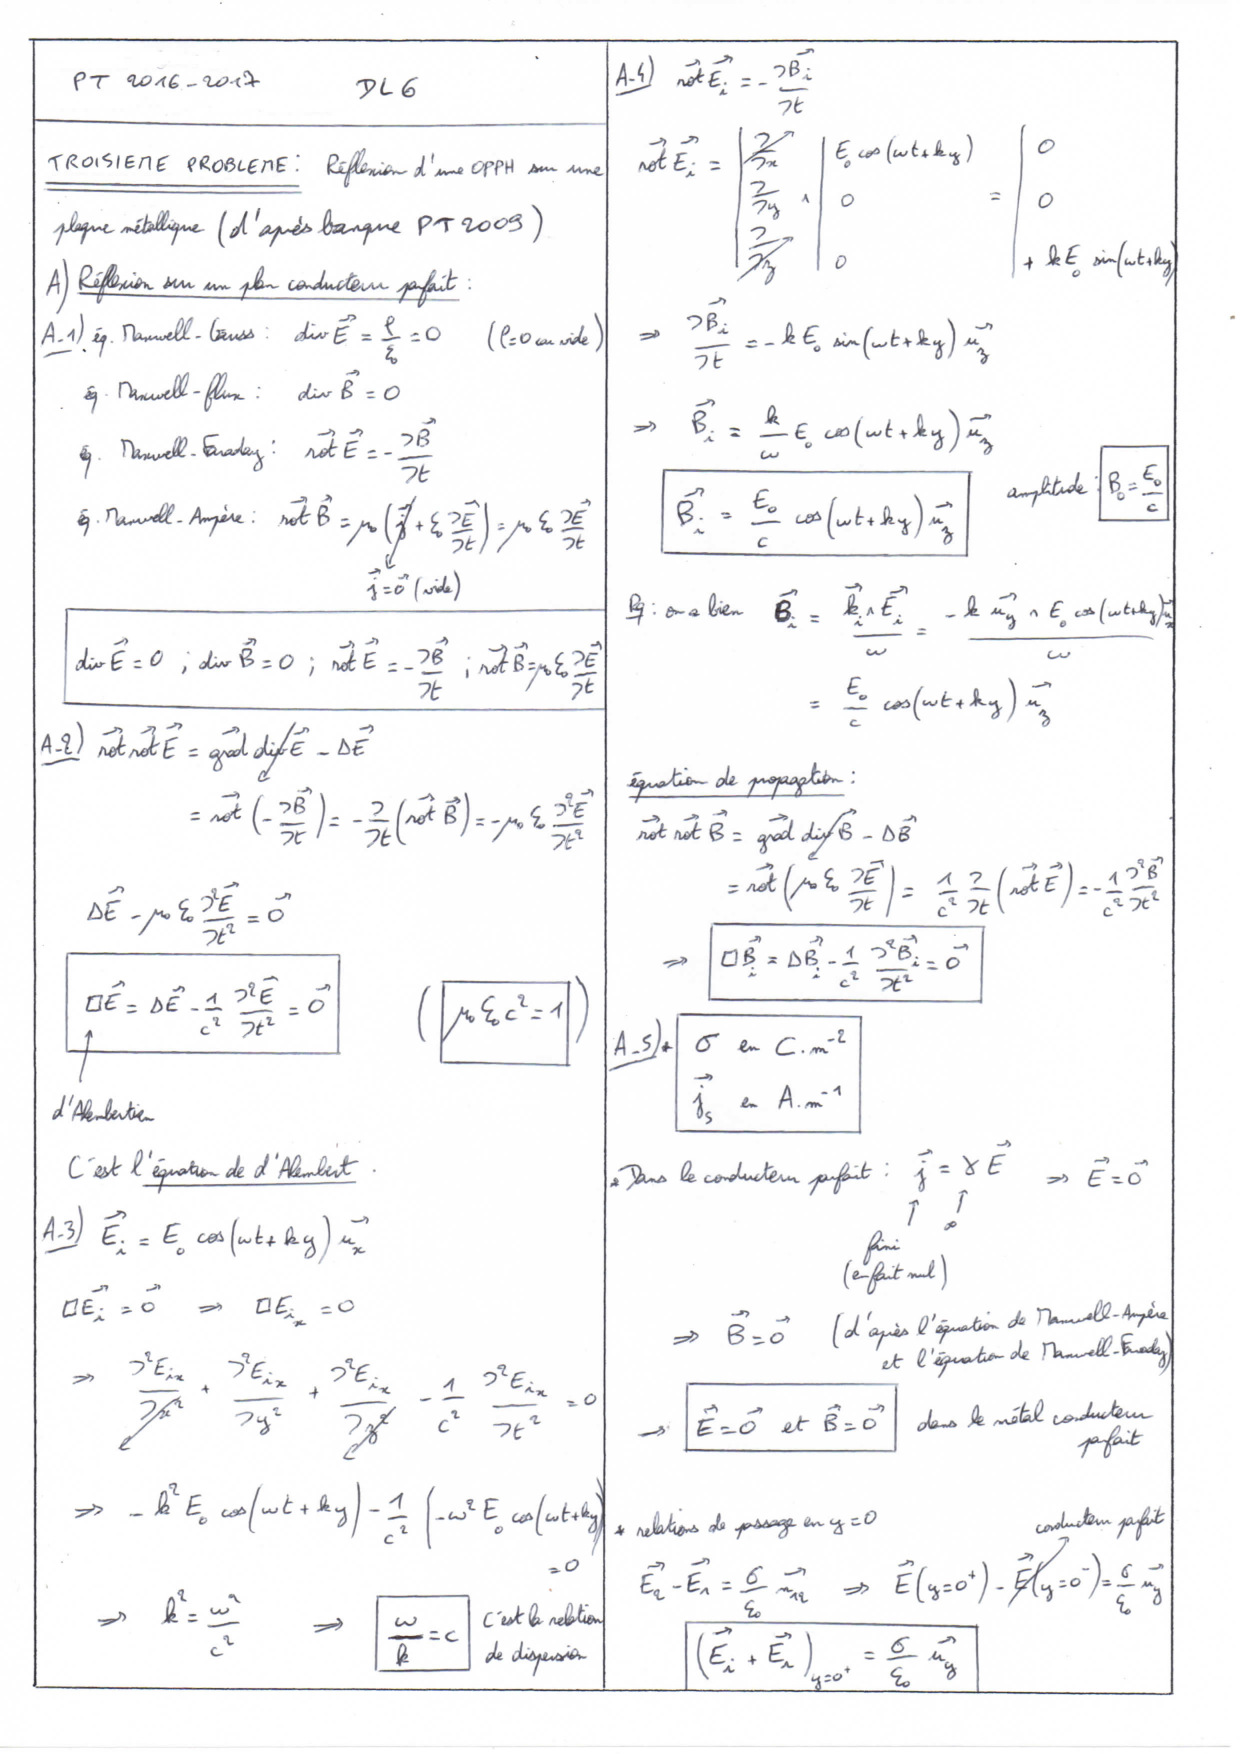 PT 2016-2017 DL6
TROISIEME PROBLEME : Réflexion d'une OPPH sur une
plaque métallique (d'après banque PT 2009)
A) Réflexion sur un plan conducteur parfait :
A-1) éq. Maxwell-Gauss : div E⃗ = ρ/ε₀ = 0 (ρ=0 car vide)
éq. Maxwell-flux : div B⃗ = 0
éq. Maxwell-Faraday : rot⃗ E⃗ = -∂B⃗/∂t
éq. Maxwell-Ampère : rot⃗ B⃗ = μ₀(j⃗ + ε₀ ∂E⃗/∂t) = μ₀ ε₀ ∂E⃗/∂t
j⃗ = 0⃗ (vide)
div E⃗ = 0 ; div B⃗ = 0 ; rot⃗ E⃗ = -∂B⃗/∂t ; rot⃗ B⃗ = μ₀ ε₀ ∂E⃗/∂t
A-2) rot⃗ rot⃗ E⃗ = grad⃗ div E⃗ - ΔE⃗
= rot⃗ (-∂B⃗/∂t) = -∂/∂t (rot⃗ B⃗) = -μ₀ ε₀ ∂²E⃗/∂t²
ΔE⃗ - μ₀ ε₀ ∂²E⃗/∂t² = 0⃗
□E⃗ = ΔE⃗ - 1/c² ∂²E⃗/∂t² = 0⃗ (μ₀ ε₀ c² = 1)
d'Alembertien
C'est l'équation de d'Alembert.
A-3) E⃗ᵢ = E₀ cos(ωt + ky) u⃗ₓ
□E⃗ᵢ = 0⃗ ⇒ □Eᵢₓ = 0
⇒ ∂²Eᵢₓ/∂x² + ∂²Eᵢₓ/∂y² + ∂²Eᵢₓ/∂z² - 1/c² ∂²Eᵢₓ/∂t² = 0
⇒ -k² E₀ cos(ωt + ky) - 1/c² (-ω² E₀ cos(ωt + ky)
= 0
⇒ k² = ω²/c² ⇒ ω/k = c C'est la relation
de dispersion
A-4) rot⃗ E⃗ᵢ = -∂B⃗ᵢ/∂t
rot⃗ E⃗ᵢ = | ∂/∂x | E₀ cos(ωt + ky) | 0
| ∂/∂y ∧ | 0 = | 0
| ∂/∂z | 0 | + kE₀ sin(ωt + ky)
⇒ ∂B⃗ᵢ/∂t = -k E₀ sin(ωt + ky) u⃗_z
⇒ B⃗ᵢ = k/ω E₀ cos(ωt + ky) u⃗_z
B⃗ᵢ = E₀/c cos(ωt + ky) u⃗_z amplitude : B₀ = E₀/c
Rq : on a bien B⃗ᵢ = k⃗ᵢ ∧ E⃗ᵢ / ω = -k u⃗_y ∧ E₀ cos(ωt + ky) u⃗ₓ / ω
= E₀/c cos(ωt + ky) u⃗_z
équation de propagation :
rot⃗ rot⃗ B⃗ = grad⃗ div B⃗ - ΔB⃗
= rot⃗ (μ₀ ε₀ ∂E⃗/∂t) = 1/c² ∂/∂t (rot⃗ E⃗) = -1/c² ∂²B⃗/∂t²
⇒ □B⃗ᵢ = ΔB⃗ᵢ - 1/c² ∂²B⃗ᵢ/∂t² = 0⃗
A-5) * σ en C.m⁻²
j⃗ₛ en A.m⁻¹
* Dans le conducteur parfait : j⃗ = γ E⃗ ⇒ E⃗ = 0⃗
fini ∞
(en fait nul)
⇒ B⃗ = 0⃗ (d'après l'équation de Maxwell-Ampère
et l'équation de Maxwell-Faraday)
→ E⃗ = 0⃗ et B⃗ = 0⃗ dans le métal conducteur
parfait
* relations de passage en y=0 conducteur parfait
E⃗₂ - E⃗₁ = σ/ε₀ n⃗₁₂ ⇒ E⃗(y=0⁺) - E⃗(y=0⁻) = σ/ε₀ u⃗_y
(E⃗ᵢ + E⃗ᵣ)_y=0⁺ = σ/ε₀ u⃗_y